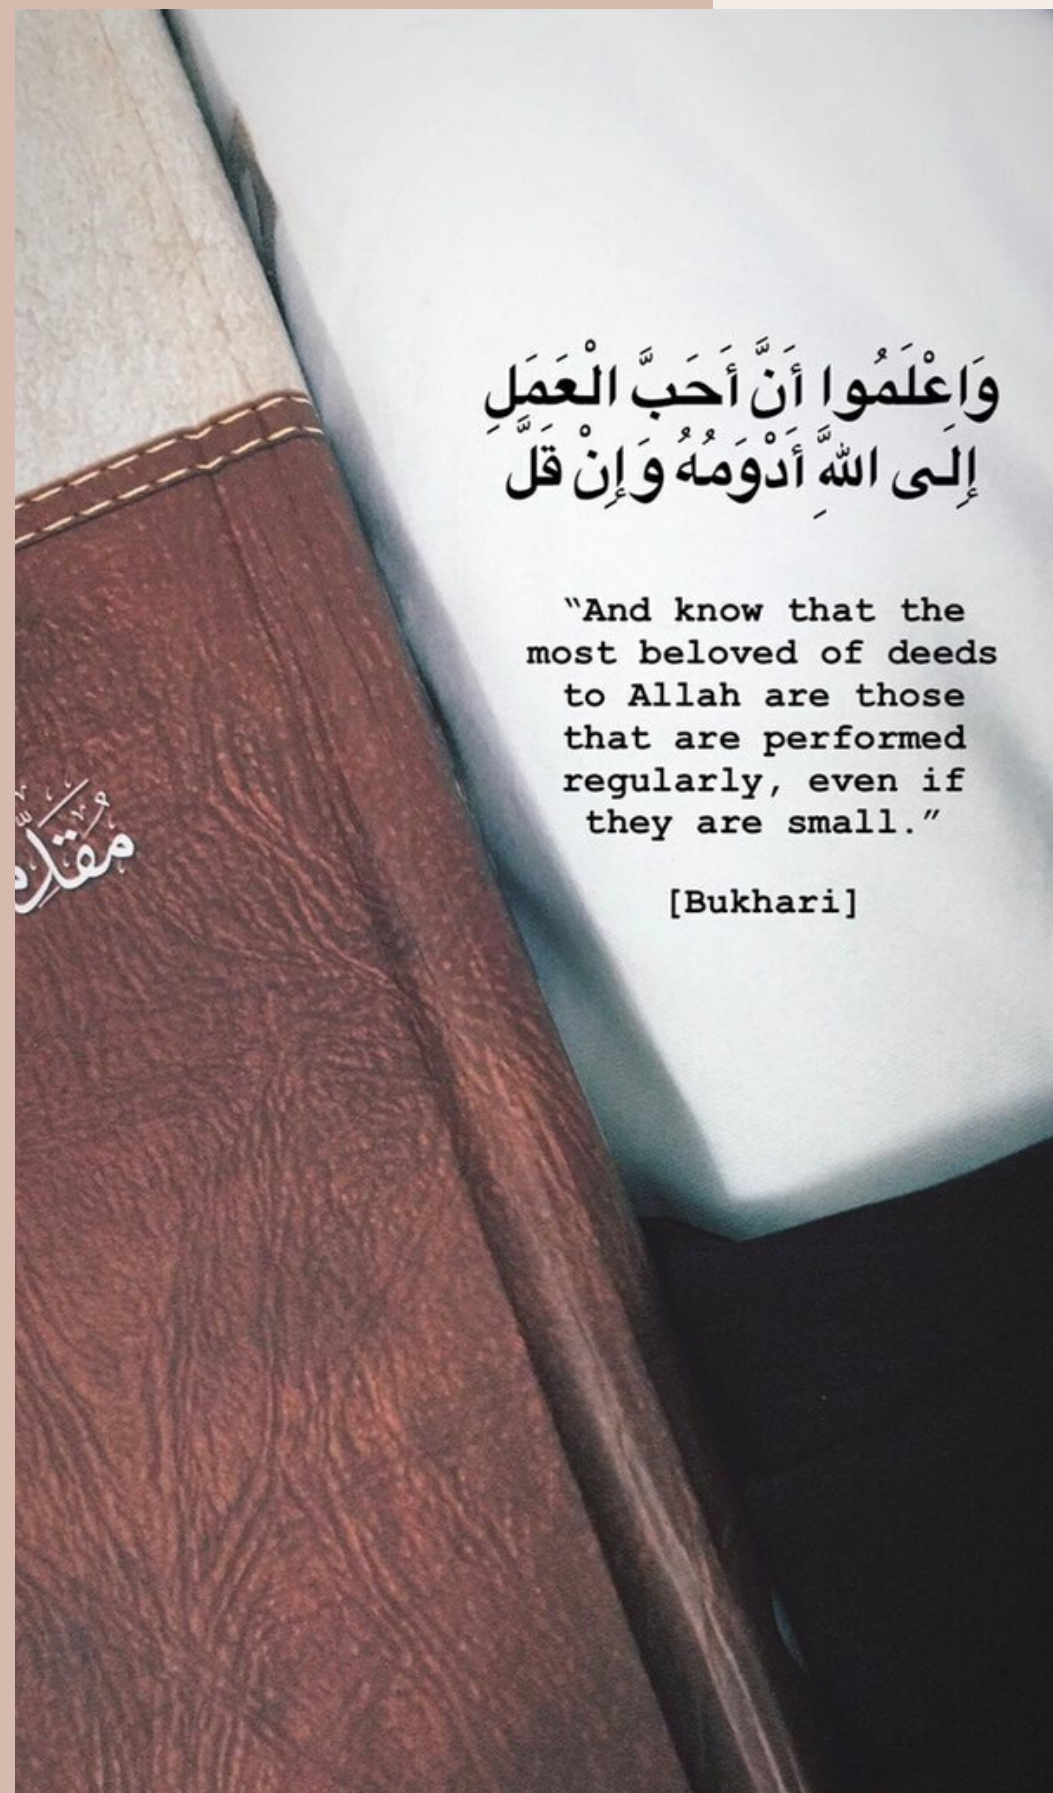 وَاعْلَمُوا أَنَّ أَحَبَّ الْعَمَلِ
إِلَى اللَّهِ أَدْوَمُهُ وَإِنْ قَلَّ
“And know that the
most beloved of deeds
to Allah are those
that are performed
regularly, even if
they are small.”
[Bukhari]